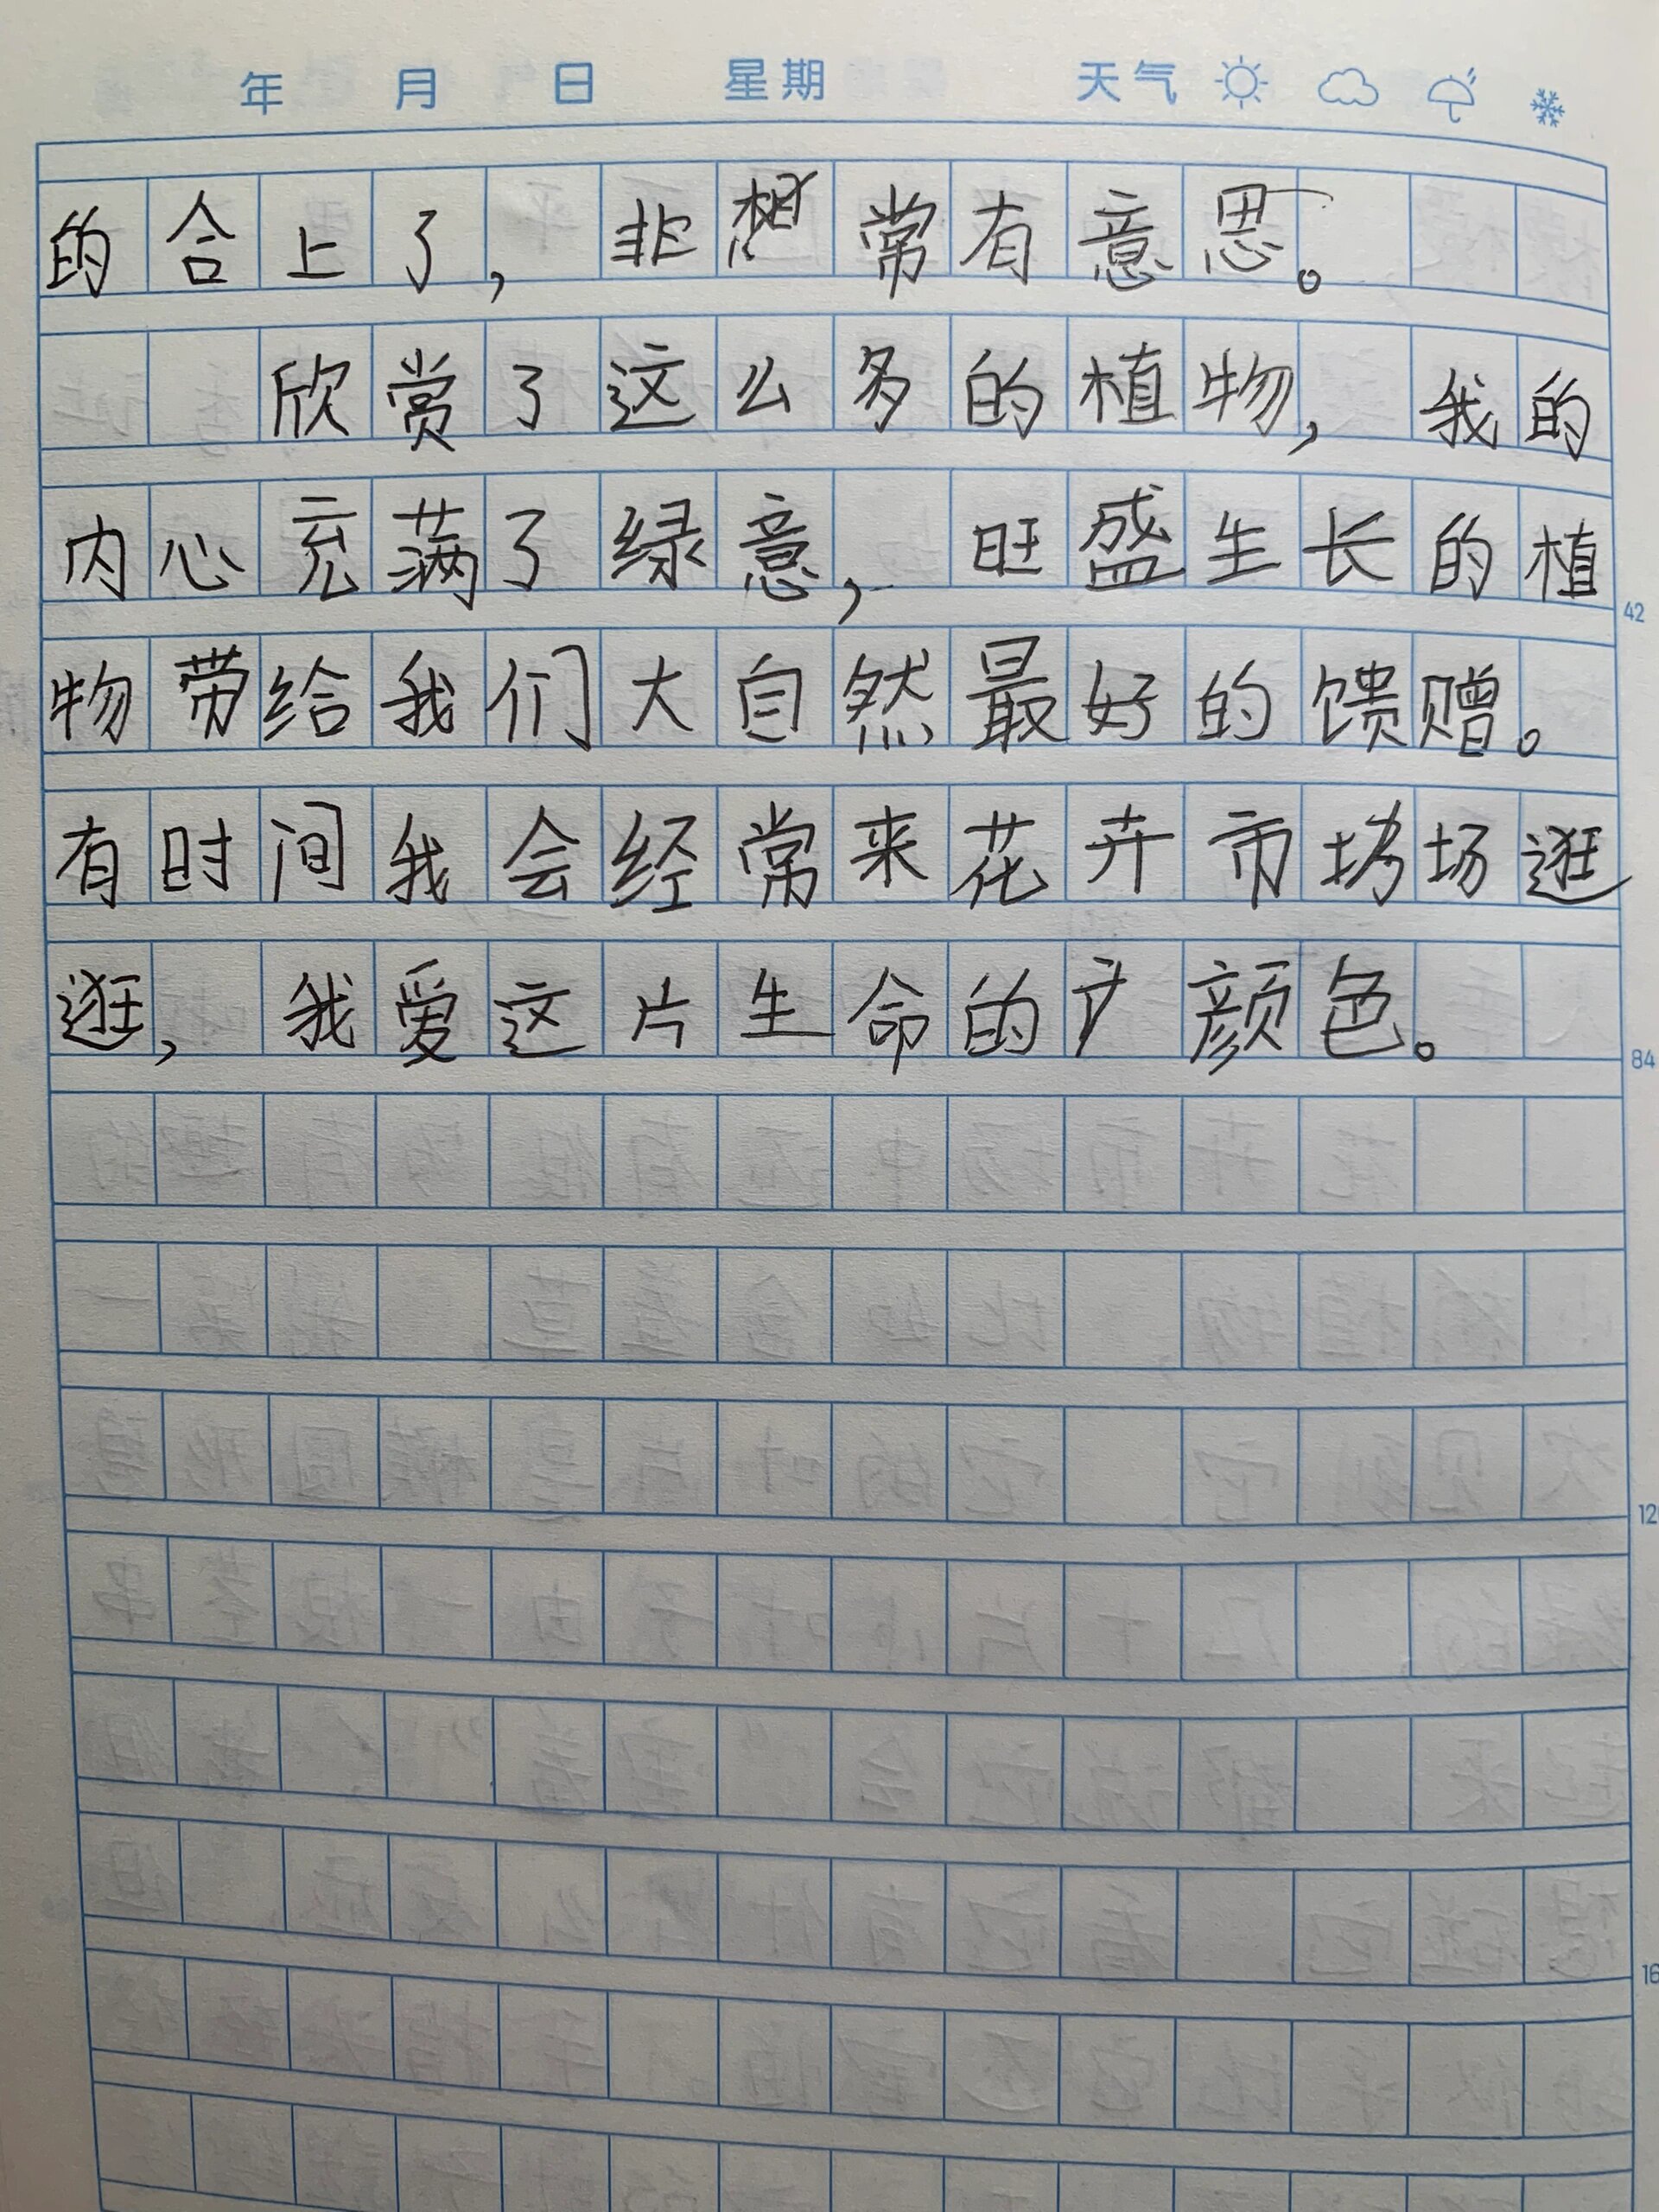 年 月 日 星期 天气
的合上了，非想常有意思。
欣赏了这么多的植物，我的
内心充满了绿意，旺盛生长的植
42
物带给我们大自然最好的馈赠。
有时间我会经常来花卉市场逛
逛，我爱这片生命的颜色。
84